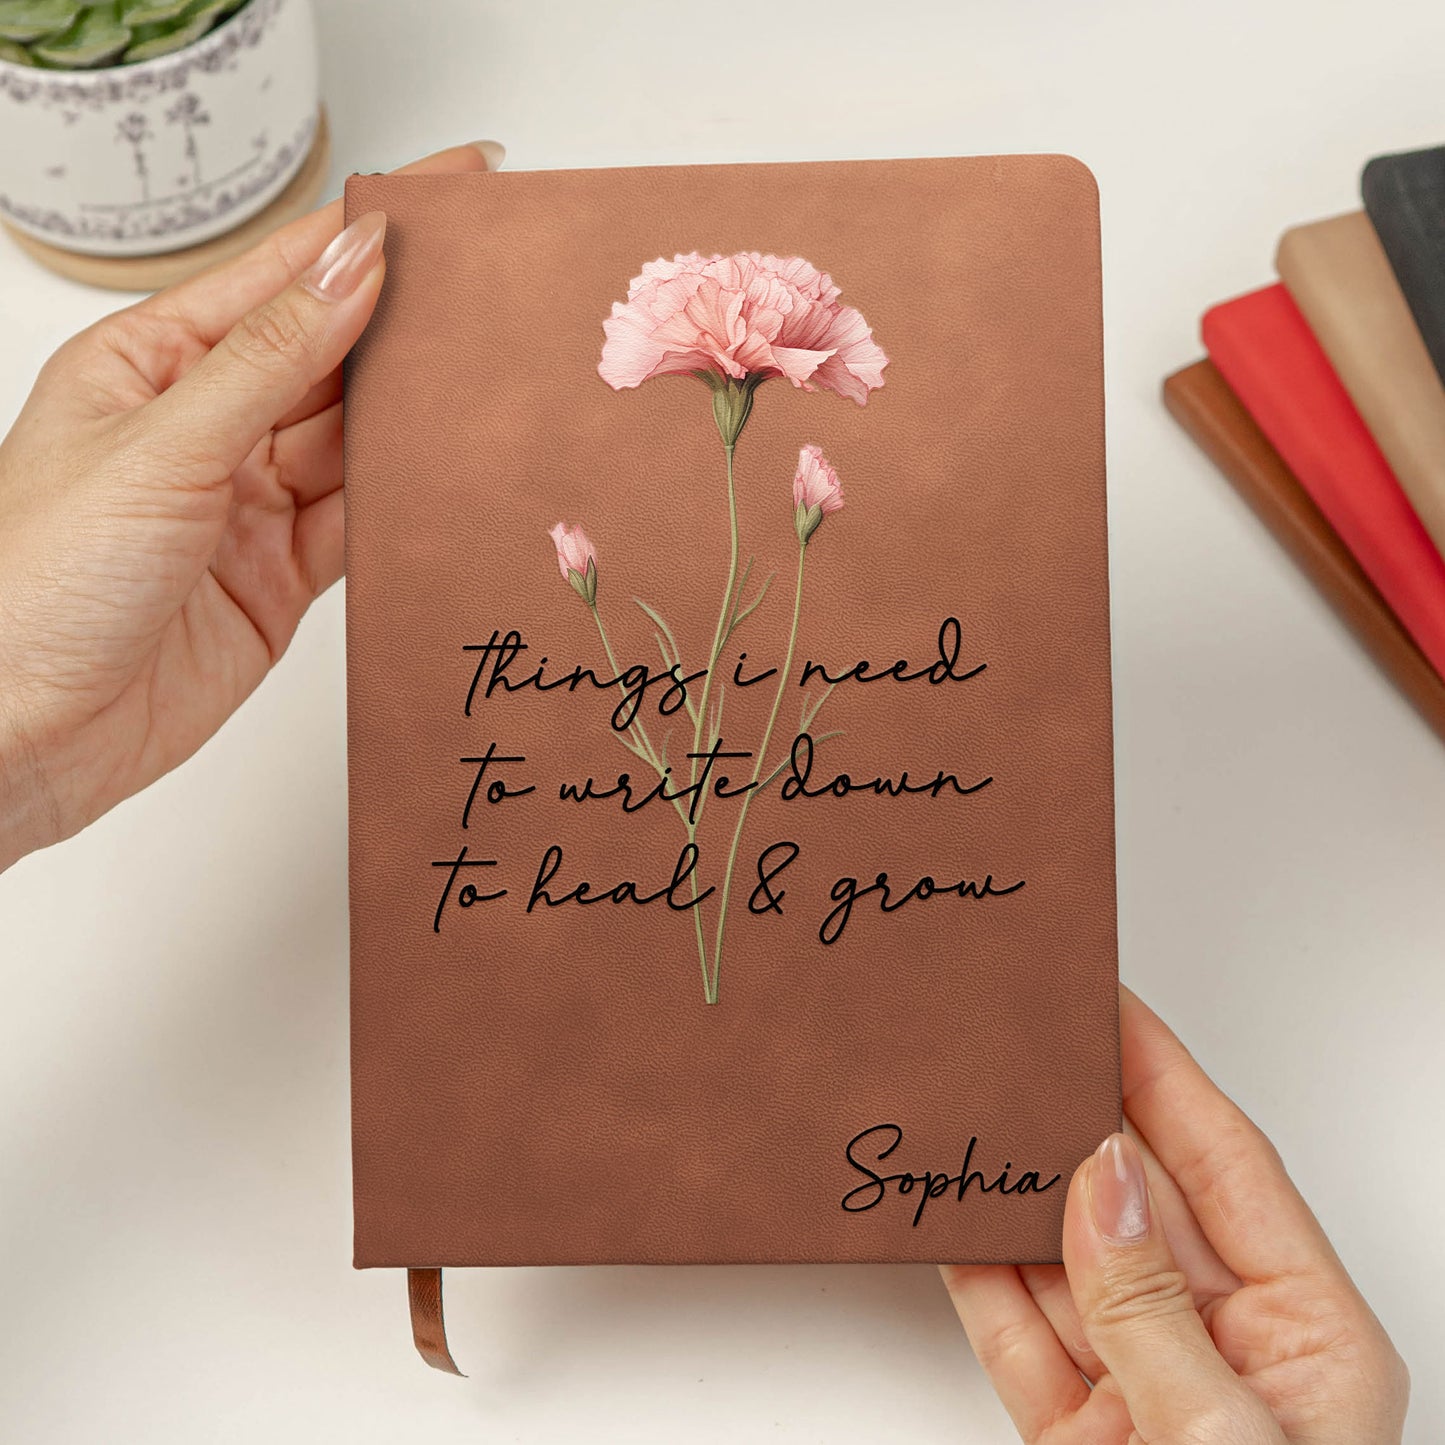 things i need
to write down
to heal & grow
Sophia